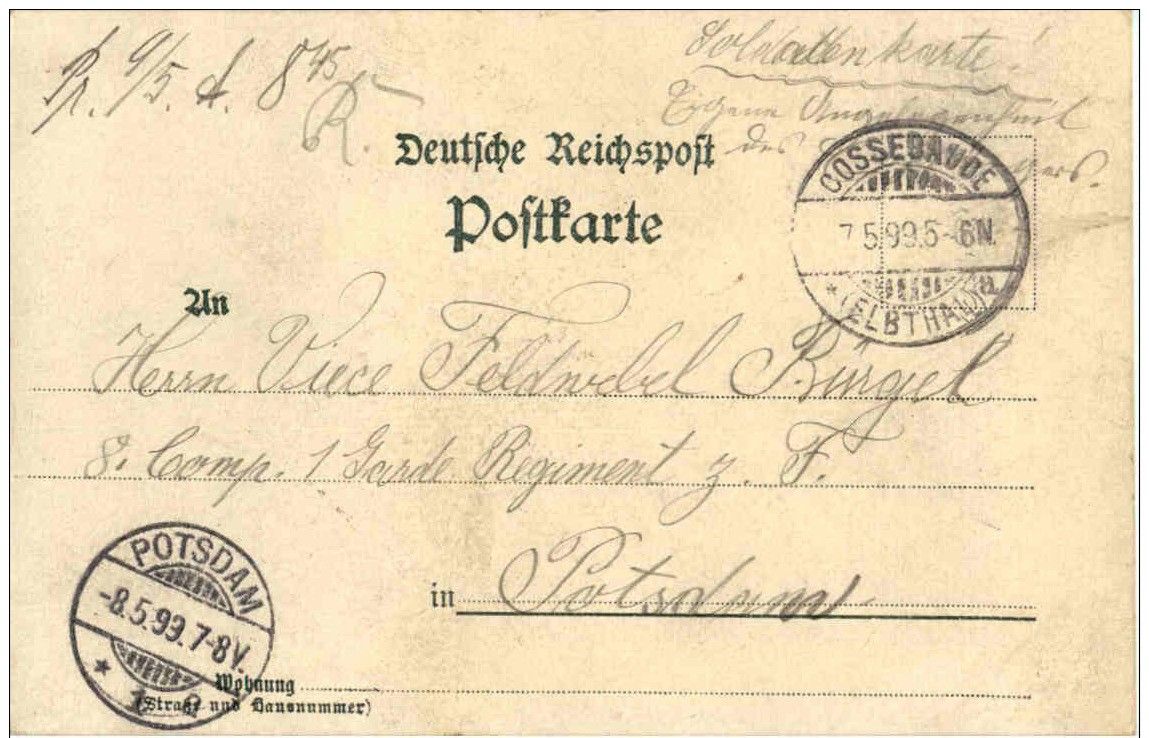 Pr. 9/5. A. 8 45
R.
Soldatenkarte!
Eigene Angelegenheit
des
Deutsche Reichspost
Postkarte
COSSEBAUDE
7.5.99.5-6N.
* (ELBTHAL) a.
An
Herrn Vice Feldwebel Bürgel
8. Comp. 1 Garde Regiment z. F.
in Potsdam
POTSDAM
-8.5.99.7-8V.
Wohnung
(Straße und Hausnummer)